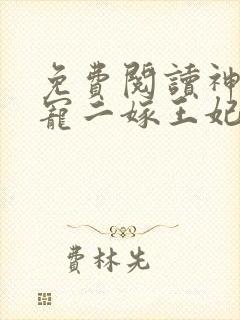 免費閱讀神
寵二嫁王妃
費林先